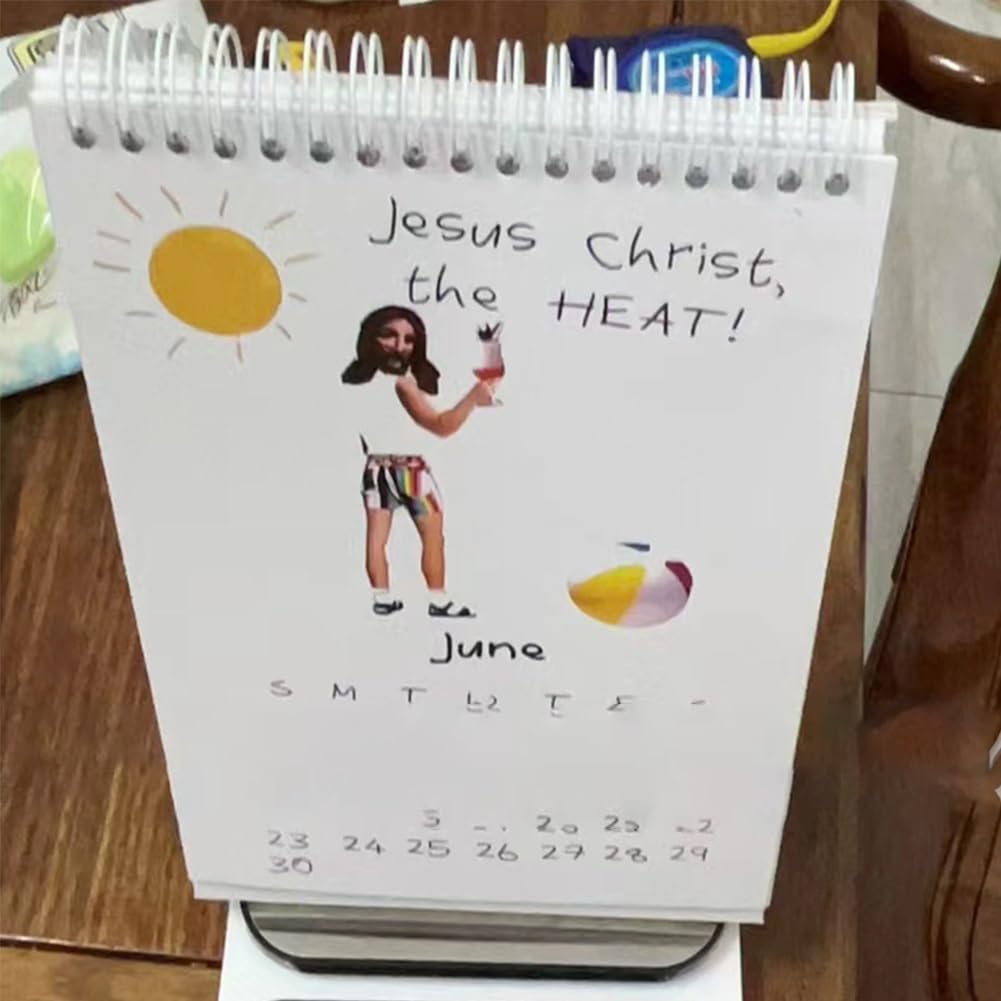 Jesus Christ,
the HEAT!
June
S M T
20
23 24 25 26 27 28 29
30